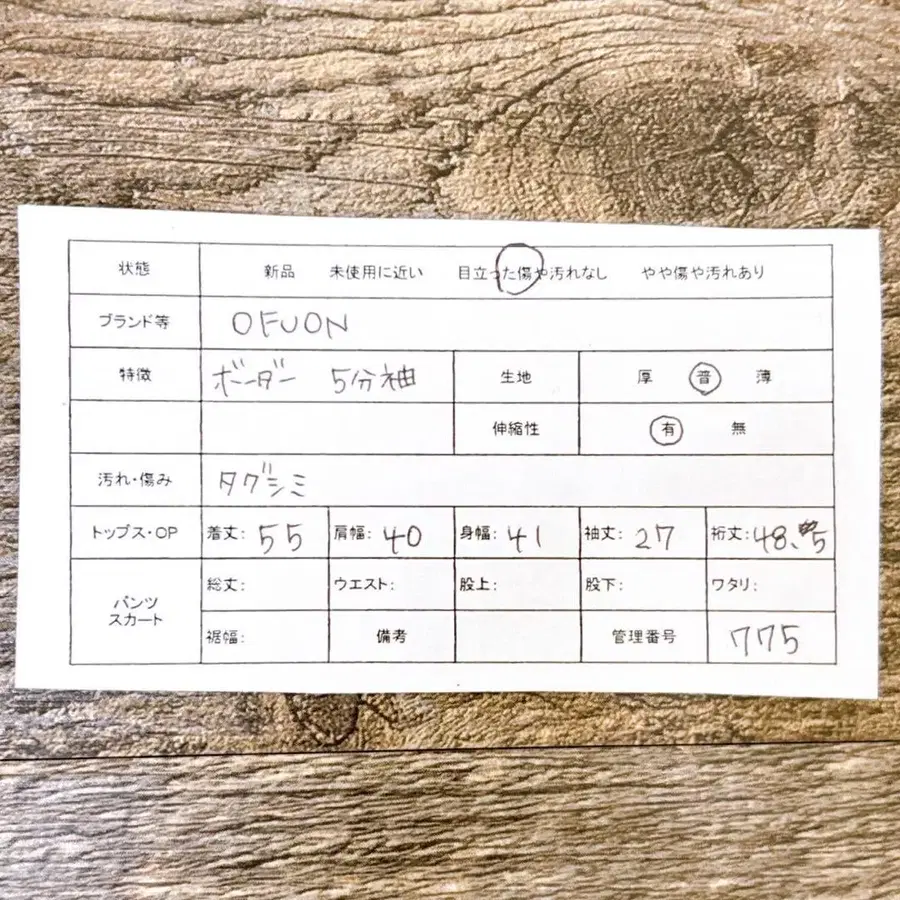 状態 新品 未使用に近い 目立った傷や汚れなし やや傷や汚れあり
ブランド等 OFUON
特徴 ボーダー 5分袖 生地 厚 普 薄
伸縮性 有 無
汚れ・傷み タグシミ
トップス・OP 着丈: 55 肩幅: 40 身幅: 41 袖丈: 27 裄丈: 48.5
パンツ スカート 総丈: ウエスト: 股上: 股下: ワタリ:
裾幅: 備考 管理番号 775